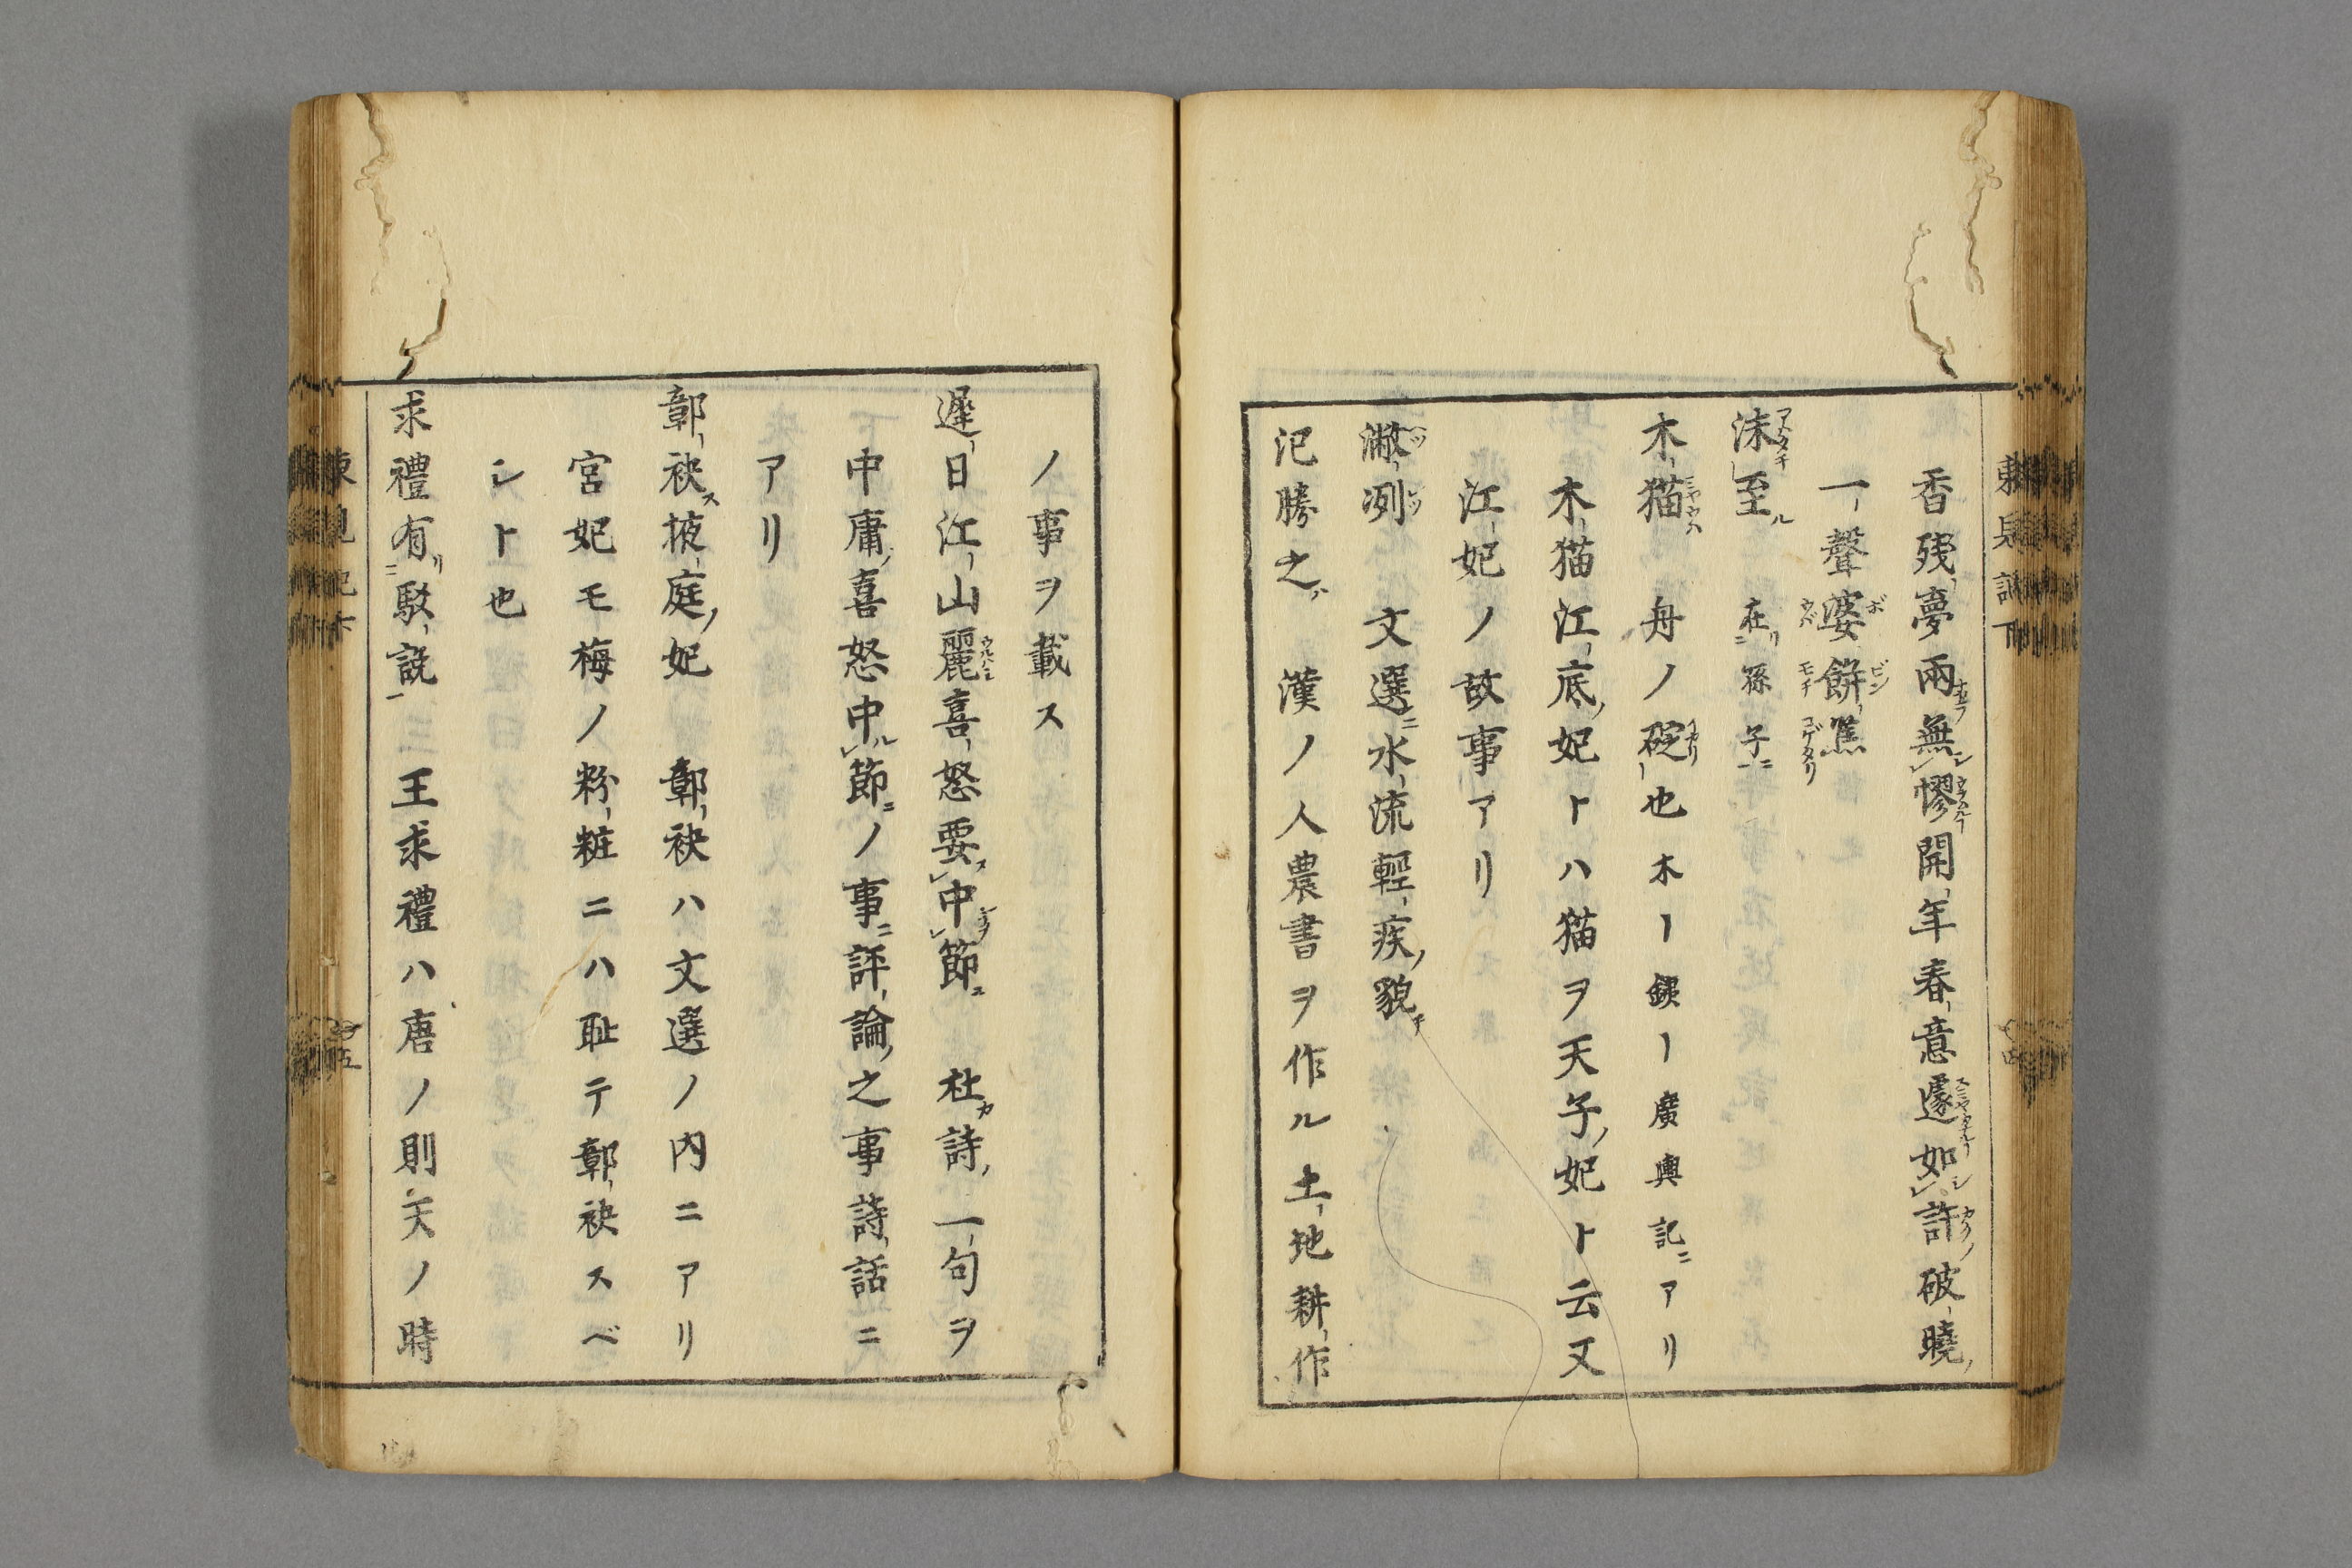 香残夢兩無憀開年春意遽如許破曉
一聲婆餅焦
沬至 在孫子
木猫 舟ノ碇也木ー鋄ー廣輿記ニアリ
木猫江底妃トハ猫ヲ天子ノ妃ト云又
江妃ノ故事アリ
潎洌 文選ニ水流輕疾ノ貌
氾勝之 漢ノ人農書ヲ作ル土地耕作
ノ事ヲ載ス
遲日江山麗喜怒要中節 杜カ詩ノ一句ヲ
中庸ノ喜怒中節ノ事ニ評論ノ之事詩話ニ
アリ
鄣袂掖庭妃 鄣袂ハ文選ノ内ニアリ
宮妃モ梅ノ粉粧ニハ耻テ鄣袂スベ
シト也
求禮有駁説 王求禮ハ唐ノ則天ノ時